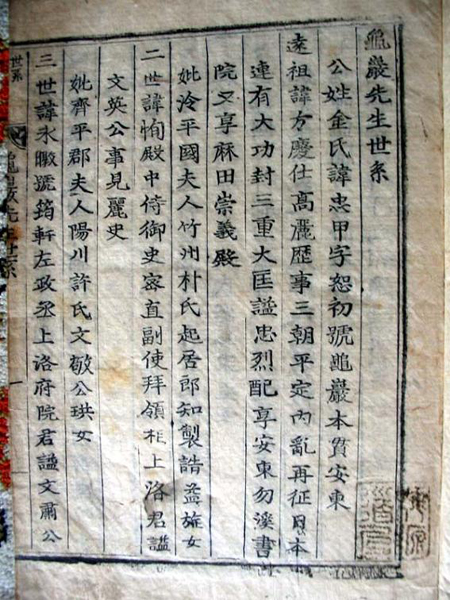 龜巖先生世系
公姓金氏諱忠甲字恕初號龜巖本貫安東
遠祖諱方慶仕高麗歷事三朝平定內亂再征日本
連有大功封三重大匡謚忠烈配享安東勿溪書
院又享麻田崇義殿
妣泠平國夫人竹州朴氏起居郎知製誥益旌女
二世諱恂殿中侍御史密直副使拜領相上洛君謚
文英公事見麗史
妣齊平郡夫人陽川許氏文敬公珙女
三世諱永暾號筠軒左政丞上洛府院君謚文肅公
世系